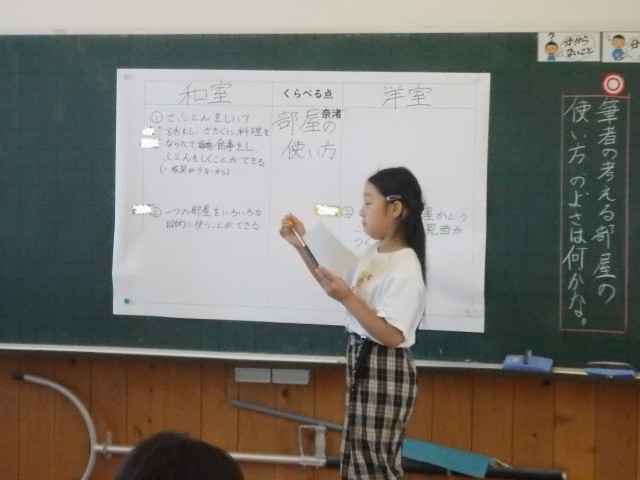 和室
くらべる点
洋室
① ざぶとんをしいて
話をし、ざたくに料理を
ならべて食事をし、
ふとんをしくことができる
(・家具が少ないから)
奈渚
部屋の
使い方
一つの部屋をいろいろな
目的に使うことができる
②
屋かという
見当が
つく
分から
ないこと
筆者の考える部屋の
使い方のよさは何かな。